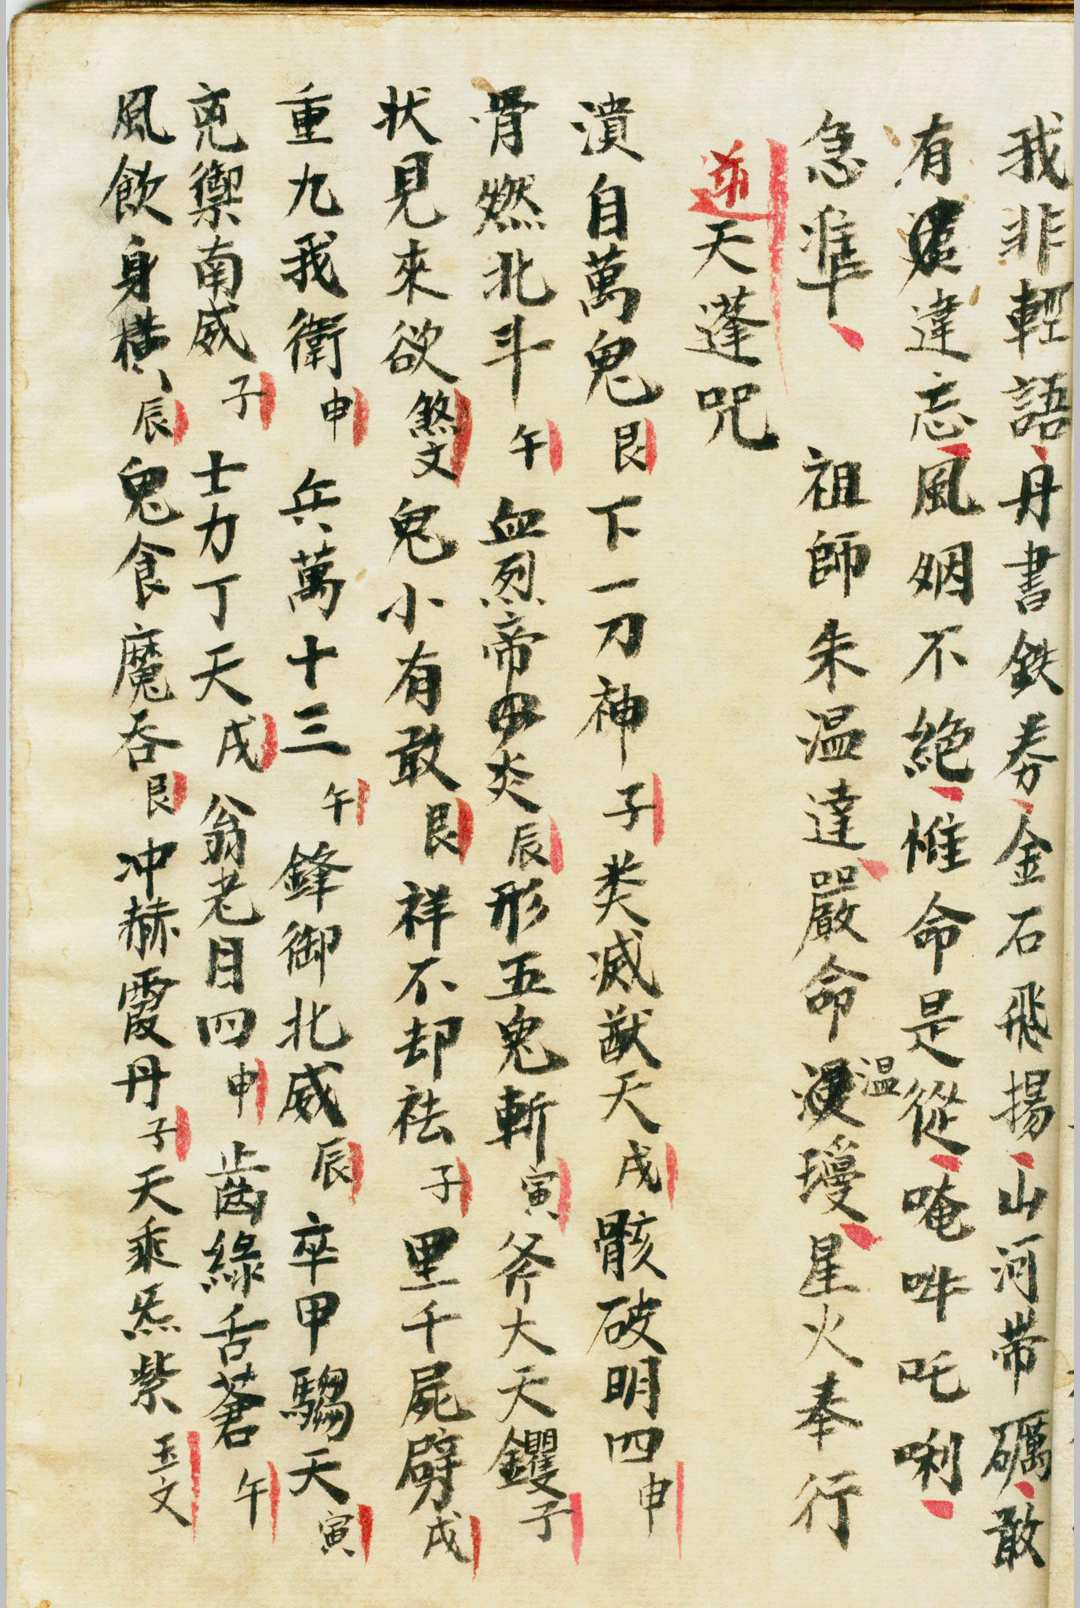 我非輕語丹書鉄券金石飛揚山河带礪敢
有違忘風烟不絶惟命是從唵吽吒唎
急準 祖師朱温達嚴命温璦星火奉行
逆天蓬咒
潰自萬鬼艮下一刀神子类滅猷天戌骸破明四申
骨燃北斗午血烈帝炎辰形五鬼斬寅斧大天钁子
状見來欲煞文鬼小有敢艮祥不却祛子里千屍劈戌
重九我衛申兵萬十三午鋒御北威辰卒甲騶天寅
兇禦南威子士力丁天戌翁老目四申齒綠舌蒼午
風飲身横辰鬼食魔吞艮冲赫霞丹子天乘炁紫玉文